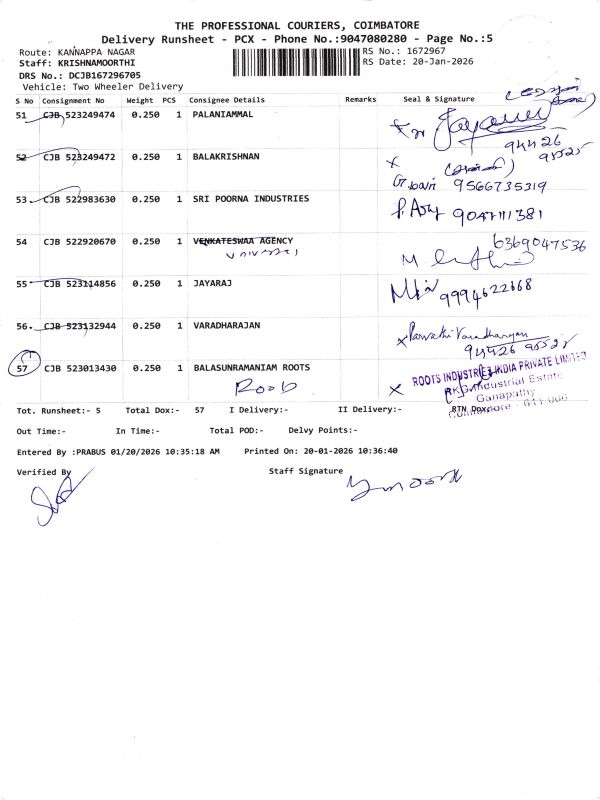 THE PROFESSIONAL COURIERS, COIMBATORE
Delivery Runsheet - PCX - Phone No.:9047080280 - Page No.:5
Route: KANNAPPA NAGAR
Staff: KRISHNAMOORTHI
DRS No.: DCJB167296705
Vehicle: Two Wheeler Delivery
RS No.: 1672967
RS Date: 20-Jan-2026
S No Consignment No Weight PCS Consignee Details Remarks Seal & Signature
51 CJB 523249474 0.250 1 PALANIAMMAL
94426
52 CJB 523249472 0.250 1 BALAKRISHNAN
9566735319
53 CJB 522983630 0.250 1 SRI POORNA INDUSTRIES
9047111381
54 CJB 522920670 0.250 1 VENKATESWAA AGENCY
6369047536
55 CJB 523114856 0.250 1 JAYARAJ
9994622668
56 CJB 523132944 0.250 1 VARADHARAJAN
Parvathi Varadharajan
94426
57 CJB 523013430 0.250 1 BALASUNRAMANIAM ROOTS
ROOTS INDUSTRIES INDIA PRIVATE LIMITED
RKG Industrial Estate
Ganapathy
Coimbatore - 641 006
Tot. Runsheet:- 5 Total Dox:- 57 I Delivery:- II Delivery:- RTN Dox:-
Out Time:- In Time:- Total POD:- Delvy Points:-
Entered By :PRABUS 01/20/2026 10:35:18 AM Printed On: 20-01-2026 10:36:40
Verified By Staff Signature